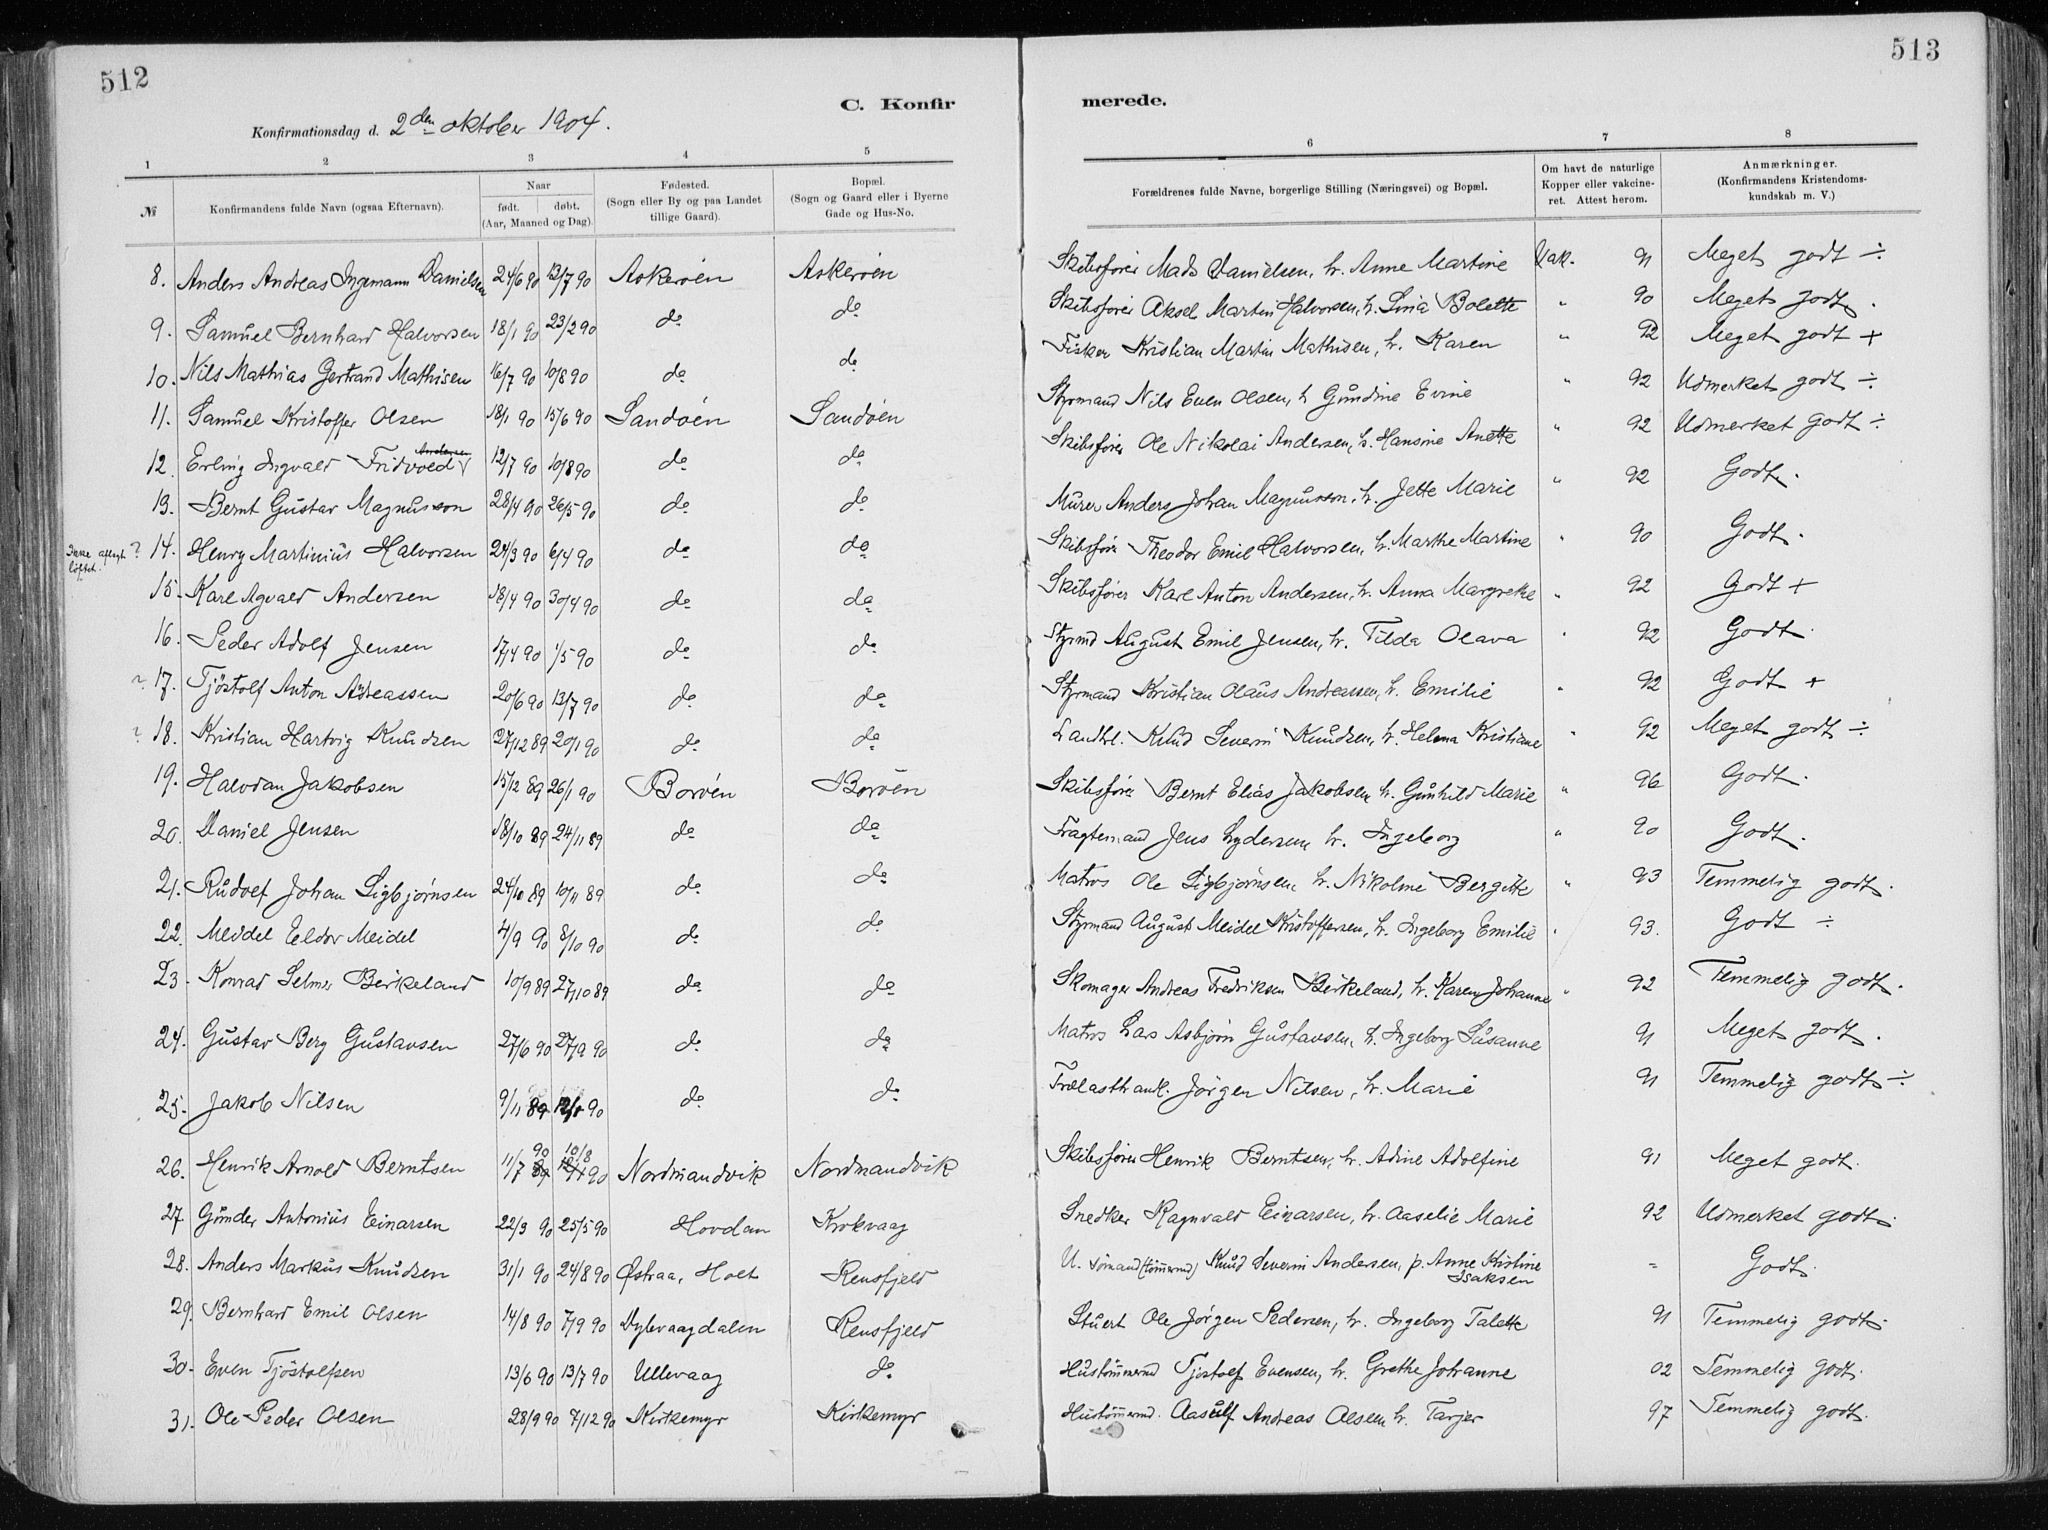 512
513
C. Konfir
merede.
Konfirmationsdag d. 2den oktober 1904.
1 2 3 4 5 6 7 8
№ Konfirmandens fulde Navn (ogsaa Efternavn).
Naar
født. døbt.
(Aar, Maaned og Dag).
Fødested.
(Sogn eller By og paa Landet
tillige Gaard).
Bopæl.
(Sogn og Gaard eller i Byerne
Gade og Hus-No.
Forældrenes fulde Navne, borgerlige Stilling (Næringsvei) og Bopæl.
Om havt de naturlige
Kopper eller vakcine-
ret. Attest herom.
Anmærkninger.
(Konfirmandens Kristendoms-
kundskab m. V.)
8. Anders Andreas Ingemann Danielsen 24/6 90 13/7 90 Askerøen Askerøen Skibsfører Mads Danielsen, h. Anne Martine Vak. 91 Meget godt ÷
9. Samuel Bernhard Halvorsen 18/1 90 23/2 90 do do Skibsfører Aksel Martin Halvorsen, h. Lina Bolette " 90 Meget godt.
10. Nils Mathias Gertrand Mathisen 16/7 90 10/8 90 do do Fisker Kristian Martin Mathisen, h. Karen " 92 Meget godt +
11. Samuel Kristoffer Olsen 18/1 90 15/6 90 Sandøen Sandøen Styrmand Nils Even Olsen, h Gundine Evine " 92 Udmerket godt ÷
12. Erling Ingvald Fridvoed Andersen 12/7 90 10/8 90 do do Skibsfører Ole Nikolai Andersen, h. Hansine Anette " 92 Udmerket godt ÷
13. Bernt Gustav Magnusson 28/4 90 26/5 90 do do Murer Anders Johan Magnusson, h. Jette Marie " 92 Godt.
Ikke aflagt løftet. ? 14. Henry Martinius Halvorsen 27/3 90 6/4 90 do do Skibsfører Theodor Emil Halvorsen, h. Marthe Martine " 90 Godt.
15. Karl Agvald Andersen 18/4 90 30/4 90 do do Skibsfører Karl Anton Andersen, h. Anna Margrethe " 92 Godt +
16. Peder Adolf Jensen 17/4 90 1/5 90 do do Styrmd August Emil Jensen, h. Tilda Olava " 92 Godt.
? 17. Tjøstolf Anton Andreassen 20/6 90 13/7 90 do do Styrmand Kristian Olaus Andreassen, h. Emilie " 92 Godt +
? 18. Kristian Hartvig Knudsen 27/12 89 20/1 90 do do Landhl. Knud Severin Knudsen, h. Helena Kristiane " 92 Meget godt ÷
19. Halvdan Jakobsen 15/12 89 26/1 90 Borøen Borøen Skibsfører Bernt Elias Jakobsen h. Gunhild Marie " 96 Godt.
20. Daniel Jensen 18/10 89 24/11 89 do do Fragtemand Jens Lydersen, h. Ingeborg " 90 Godt.
21. Rudolf Johan Sigbjørnsen 24/10 89 10/11 89 do do Matros Ole Sigbjørnsen, h. Nikoline Bergitte " 93 Temmelig godt.
22. Meidel Eldor Meidel 4/9 90 8/10 90 do do Styrmand August Meidel Kristoffersen, h. Ingeborg Emilie " 93. Godt ÷
23. Konrad Selmer Birkeland 10/9 89 27/10 89 do do Skomager Andreas Fredriksen Birkeland, h. Karen Johanne " 92 Temmelig godt.
24. Gustav Berg Gustavsen 27/6 90 27/9 90 do do Matros Lars Asbjørn Gustavsen, h. Ingeborg Susanne 91 Meget godt.
25. Jakob Nilsen 9/11 89 12/1 90 do do Trælasthandl. Jørgen Nilsen, h. Marie 91 Temmelig godt ÷
26. Henrik Arnold Berntsen 11/7 90 10/8 90 Nordmandvik Nordmandvik Skibsfører Henrik Berntsen, h. Adine Adolfine 91 Meget godt.
27. Gunder Antonius Einarsen 22/3 90 25/5 90 Hovdan Krokvaag Snedker Ragnvald Einarsen, h. Aaselie Marie 92 Udmerket godt.
28. Anders Markus Knudsen 31/1 90 24/8 90 Østraa, Holt Rensfjeld U. Sømand (tømmermd) Knud Severin Andersen, p. Anne Kristine Isaksen " Godt.
29. Bernhard Emil Olsen 14/8 90 7/9 90 Dybvaagdalen Rensfjeld Stuert Ole Jørgen Pedersen, h. Ingeborg Talette 91 Temmelig godt.
30. Even Tjøstolfsen 13/6 90 13/7 90 Ullevaag do Hustømmermd Tjøstolf Evensen, h. Grethe Johanne 02 Temmelig godt.
31. Ole Peder Olsen 28/9 90 7/12 90 Kirkemyr Kirkemyr Hustømmermd. Aasulf Andreas Olsen h. Tarjer 97 Temmelig godt.